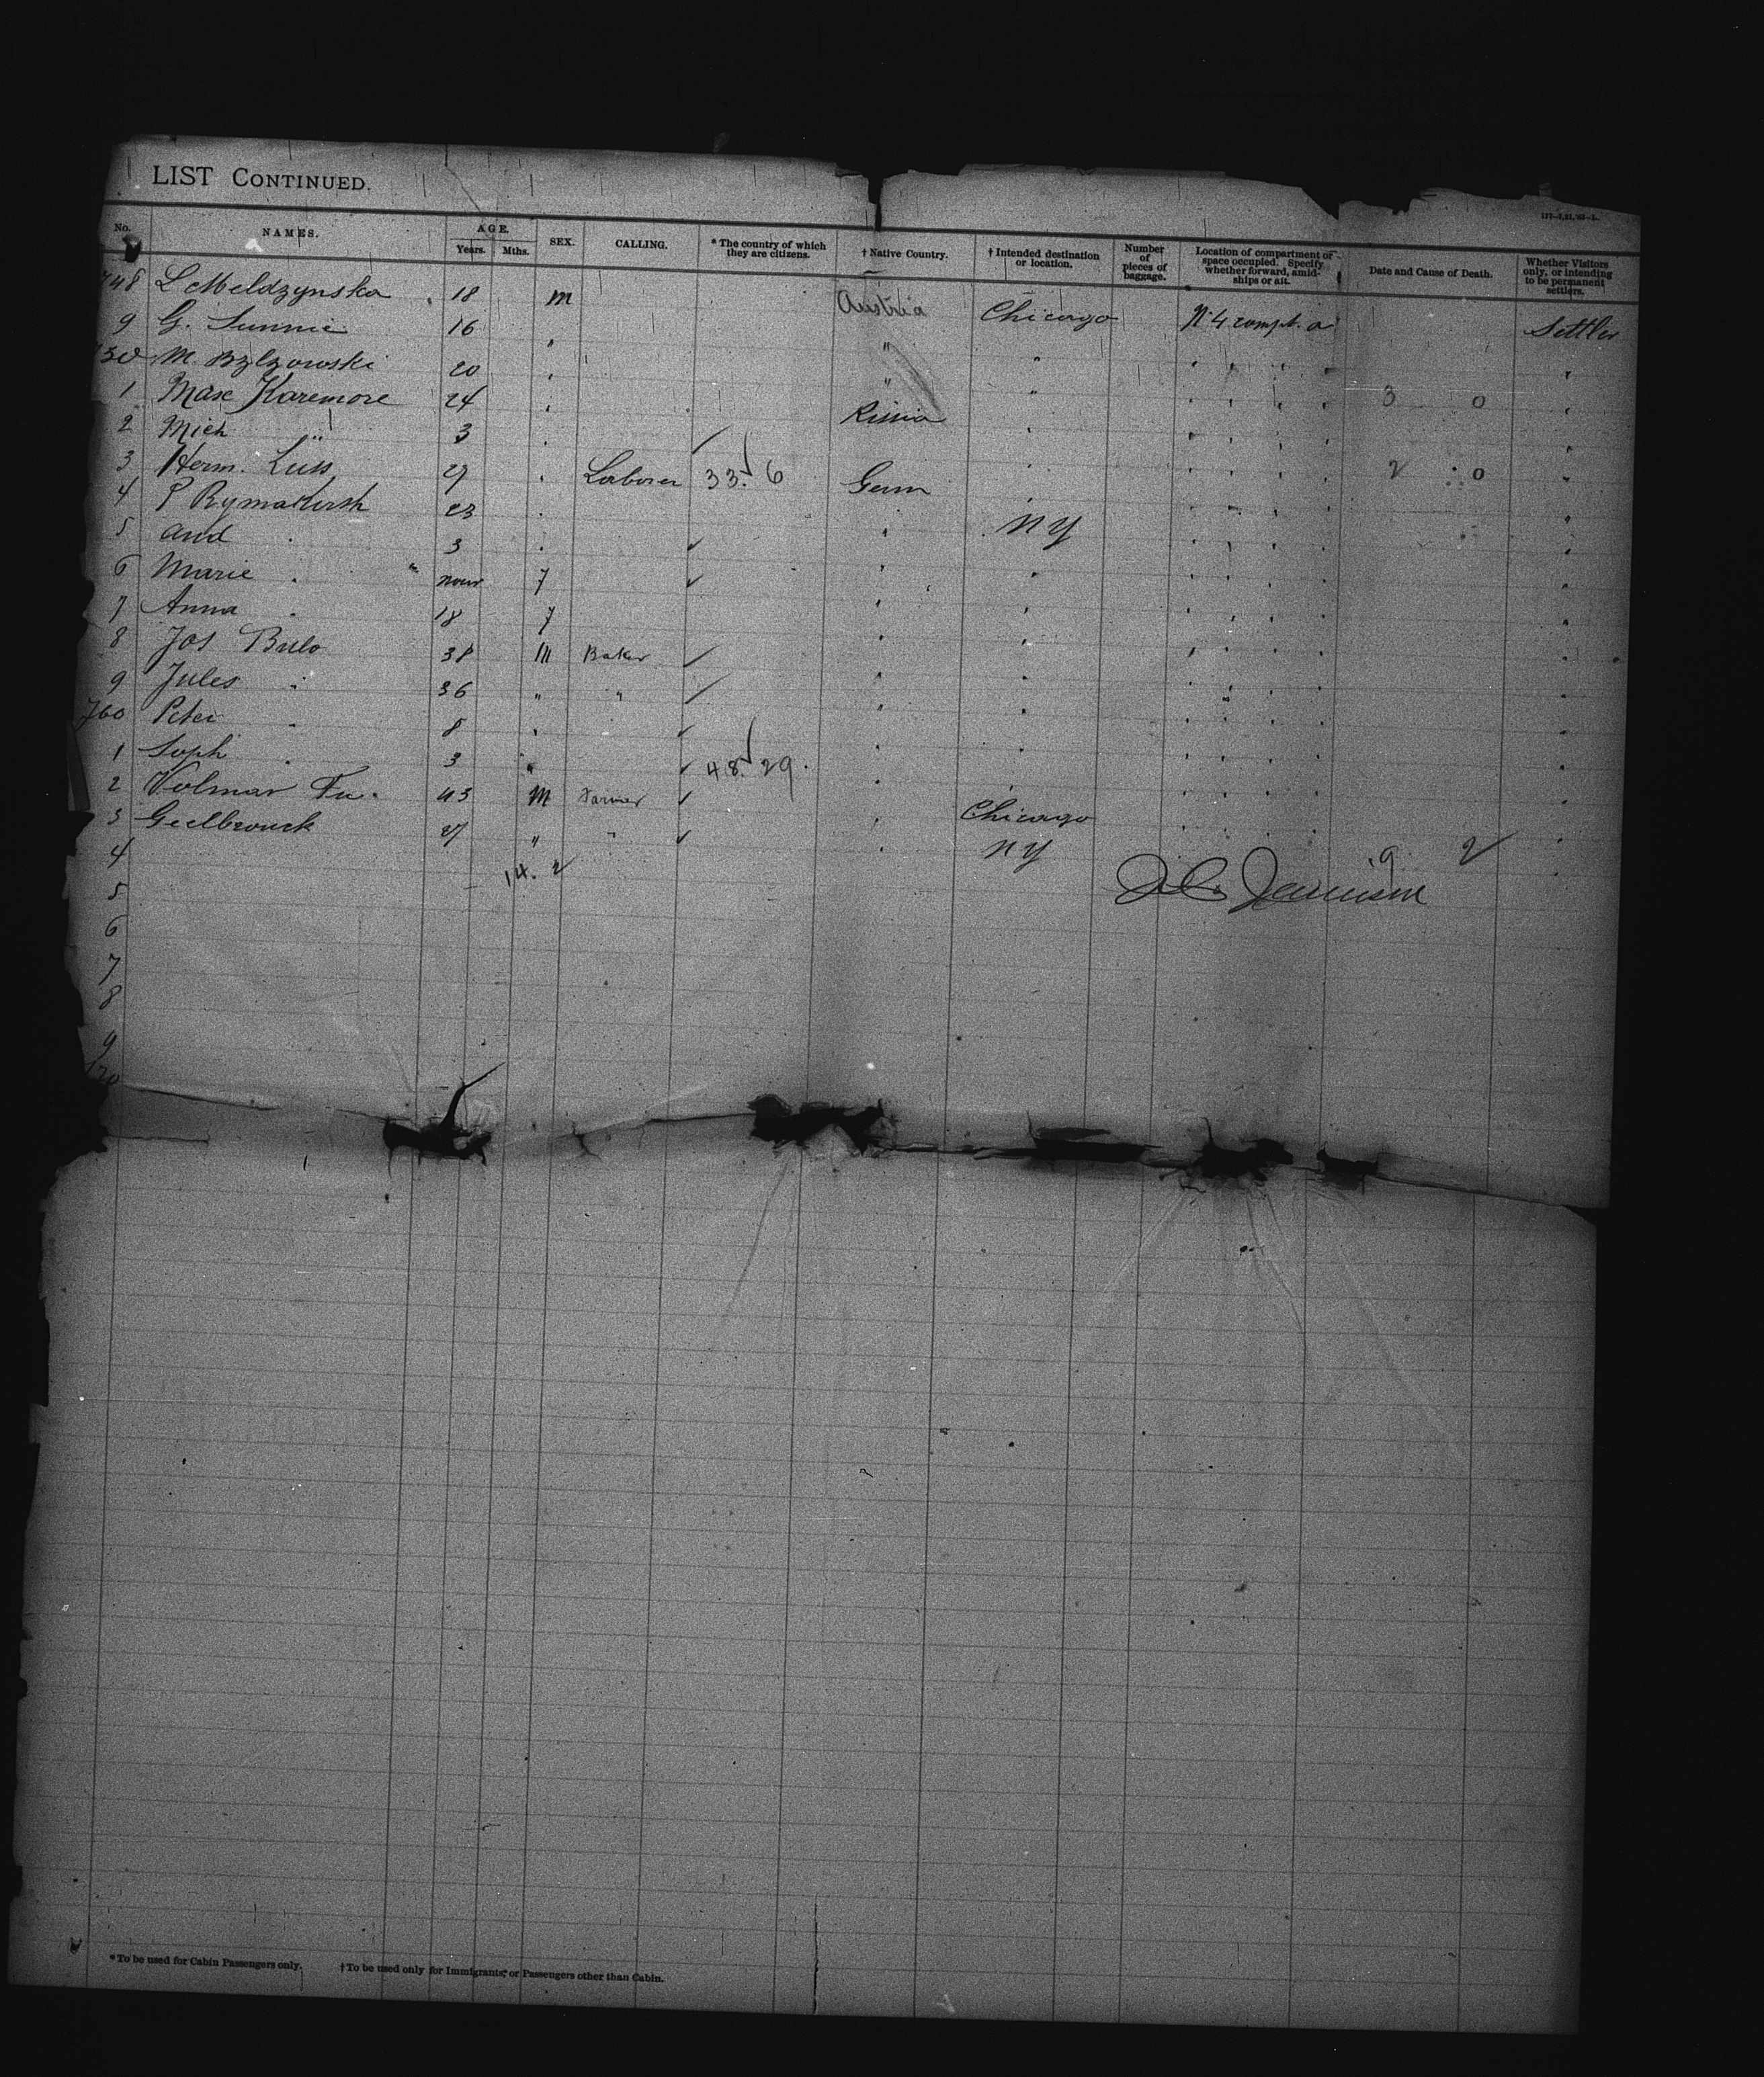 LIST CONTINUED.
No. NAMES. AGE. Years. Mths. SEX. CALLING. * The country of which they are citizens. † Native Country. † Intended destination or location. Number of pieces of baggage. Location of compartment or space occupied. Specify whether forward, amidships or aft. Date and Cause of Death. Whether Visitors only, or intending to be permanent settlers.
748 L Meldzynska 18 M Austria Chicago N 4 compt. a Settler
9 G. 16 " " "
20 "
1 Max Karemore 24 Russia 3 0
2 Mich " 3
3 Herm. Luss 27 Laborer 33. 6 Germ 2 0
4 P Rymakirsh 23 N Y
5 And 3
6 Marie f
7 Anna 18 f
8 Jos Bulo 38 M Baker
9 Jules 36 " "
760 Peter 8
1 Soph 3 48. 29.
2 Volmar Fu. 43 M Farmer Chicago
3 Geelbrouck 27 " " N Y
4 14. 2 9 2
5
6
7
8
9
* To be used for Cabin Passengers only. † To be used only for Immigrants, or Passengers other than Cabin.